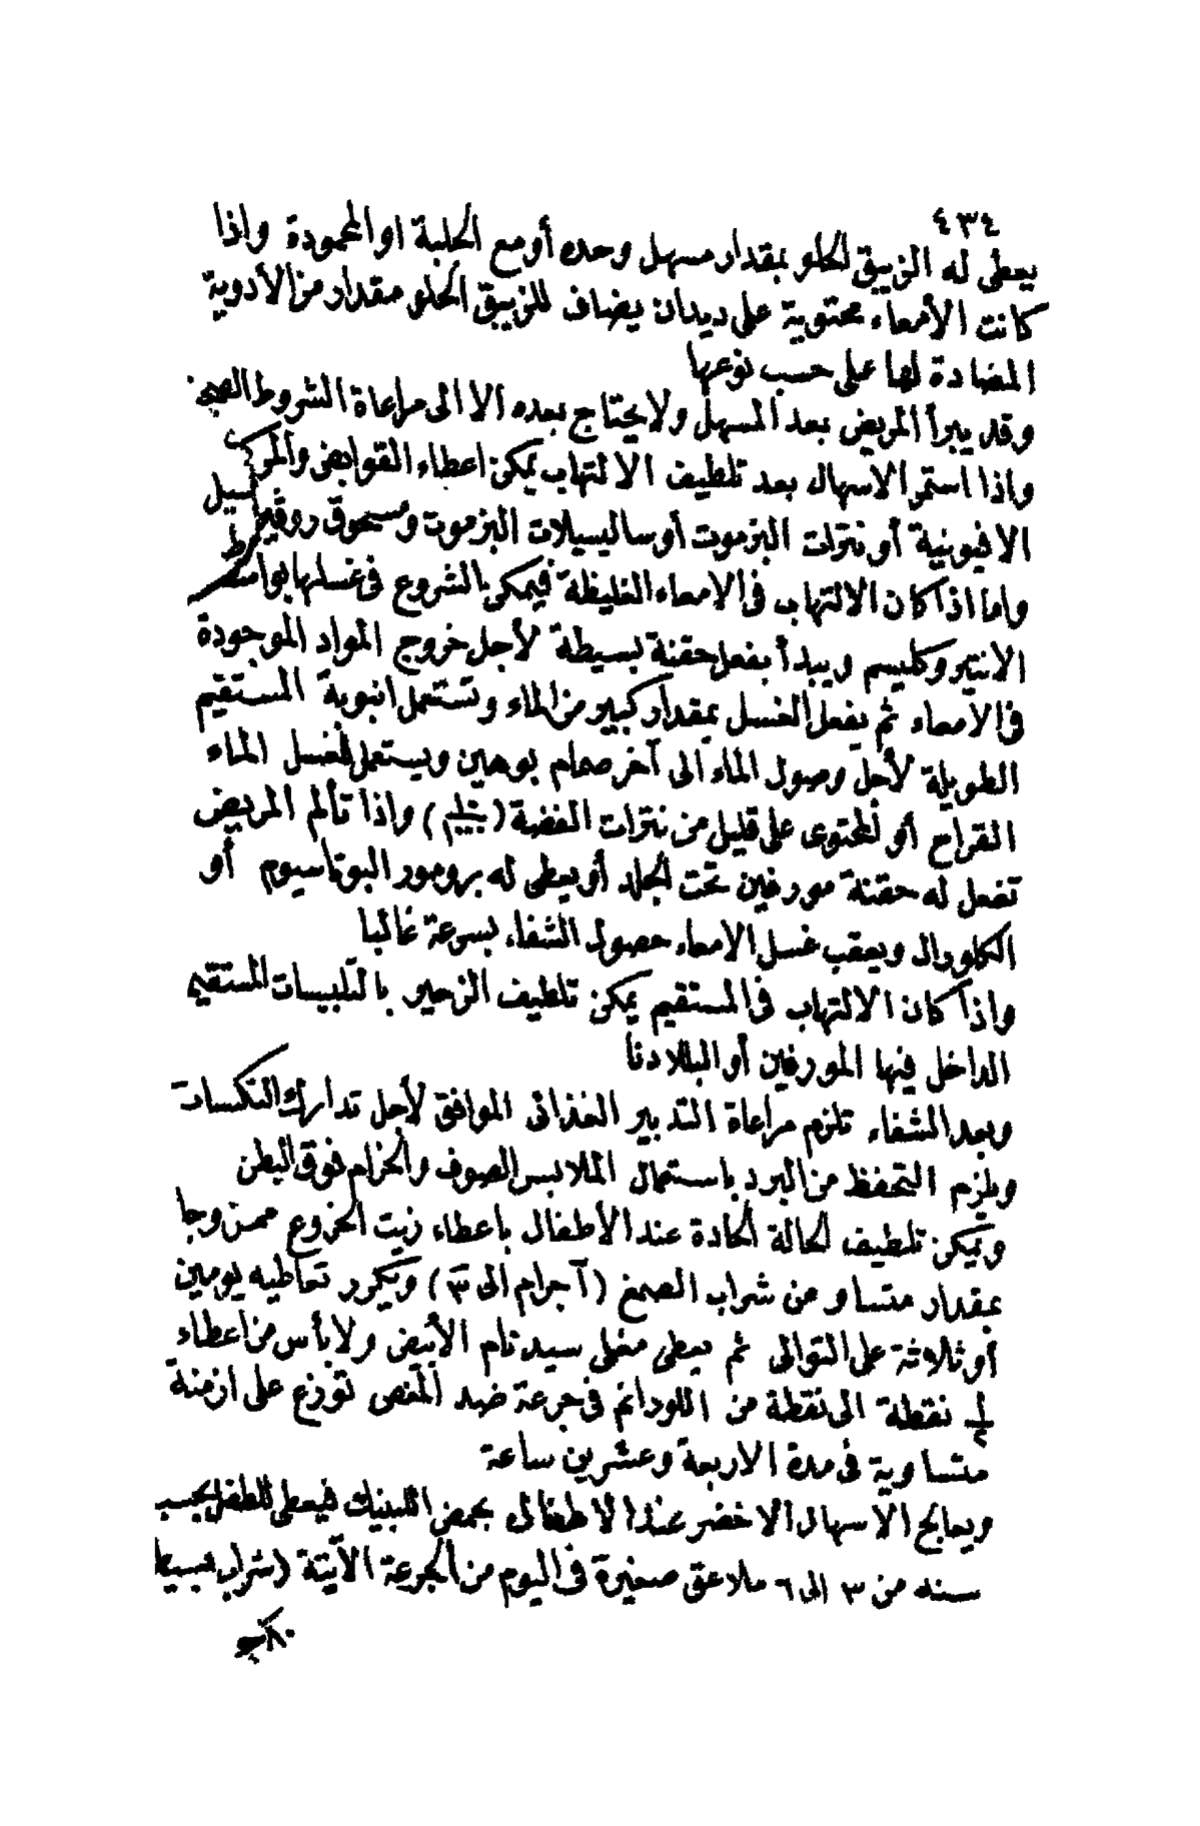 ٤٣٤
يعطى له الزيبق الحلو بمقدار مسهل وحده أومع الحلبة او المحمودة واذا
كانت الأمعاء محتوية على ديدان يضاف للزيبق الحلو مقدار من الأدوية
المضادة لها على حسب نوعها
وقد يبرأ المريض بعد المسهل ولا يحتاج بعده الا الى مراعاة الشروط الصحية
واذا استمر الاسهال بعد تلطيف الالتهاب يمكن اعطاء القوابض والمركبات
الافيونية أو نترات البزموت أو ساليسيلات البزموت ومسحوق روڤير
واما اذا كان الالتهاب فى الامعاء الغليظة فيمكن الشروع فى غسلها بواسطة
الانتير وكليسم ويبدأ بفعل حقنة بسيطة لأجل خروج المواد الموجودة
فى الأمعاء ثم يفعل الغسل بمقدار كبير من الماء وتستعمل انبوبة المستقيم
الطويلة لأجل وصول الماء الى آخر صمام بوهين ويستعمل للغسل الماء
القراح أو المحتوى على قليل من نترات الفضة واذا تألم المريض
تفعل له حقنة مورفين تحت الجلد أو يعطى له برومور البوتاسيوم أو
الكلورال ويعقب غسل الامعاء حصول الشفاء بسرعة غالبا
واذا كان الالتهاب فى المستقيم يمكن تلطيف الزحير بالتلبيسات المستقيمية
الداخل فيها المورفين أو البللادنا
وبعد الشفاء تلزم مراعاة التدبير الغذائى الموافق لأجل تدارك النكسات
ويلزم التحفظ من البرد باستعمال الملابس الصوف والحزام فوق البطن
ويمكن تلطيف الحالة الحادة عند الأطفال باعطاء زيت الخروع ممزوجا
بمقدار متساو من شراب الصمغ (آ جرام الى ٣) ويكرر تعاطيه يومين
أو ثلاثة على التوالى ثم يعطى مغلى سيدنام الأبيض ولا بأس من اعطاء
١/٢ نقطة الى نقطة من اللودانم فى جرعة ضد المغص توزع على ازمنة
متساوية فى مدة الاربعة وعشرين ساعة
ويعالج الاسهال الاخضر عند الاطفال بحمض اللبنيك فيعطى للطفل بحسب
سنه من ٣ الى ٦ ملاعق صغيرة فى اليوم من الجرعة الآتية (شراب بسيط